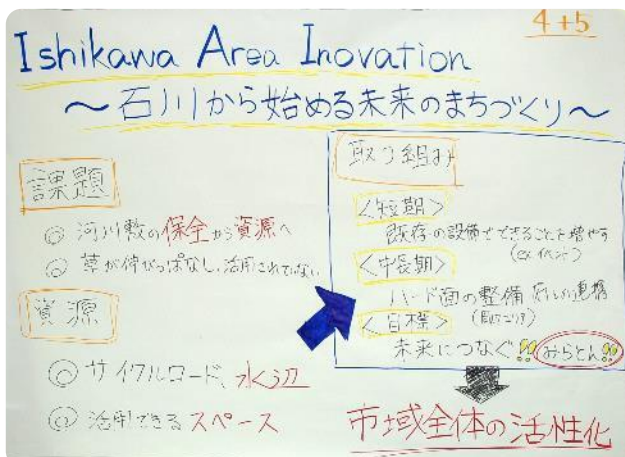 4+5
Ishikawa Area Inovation
～石川から始める未来のまちづくり～
課題
◎ 河川敷の保全から資源へ
◎ 草が伸びっぱなし、活用されていない
資源
◎ サイクルロード、水辺
◎ 活用できるスペース
取り組み
<短期>
既存の設備でできることを増やす
(ex.イベント)
<中長期>
ハード面の整備
<目標>
未来につなぐ!! みらとん!!
市域全体の活性化